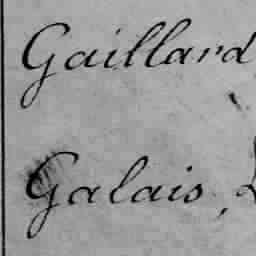 Gaillard
Galais,